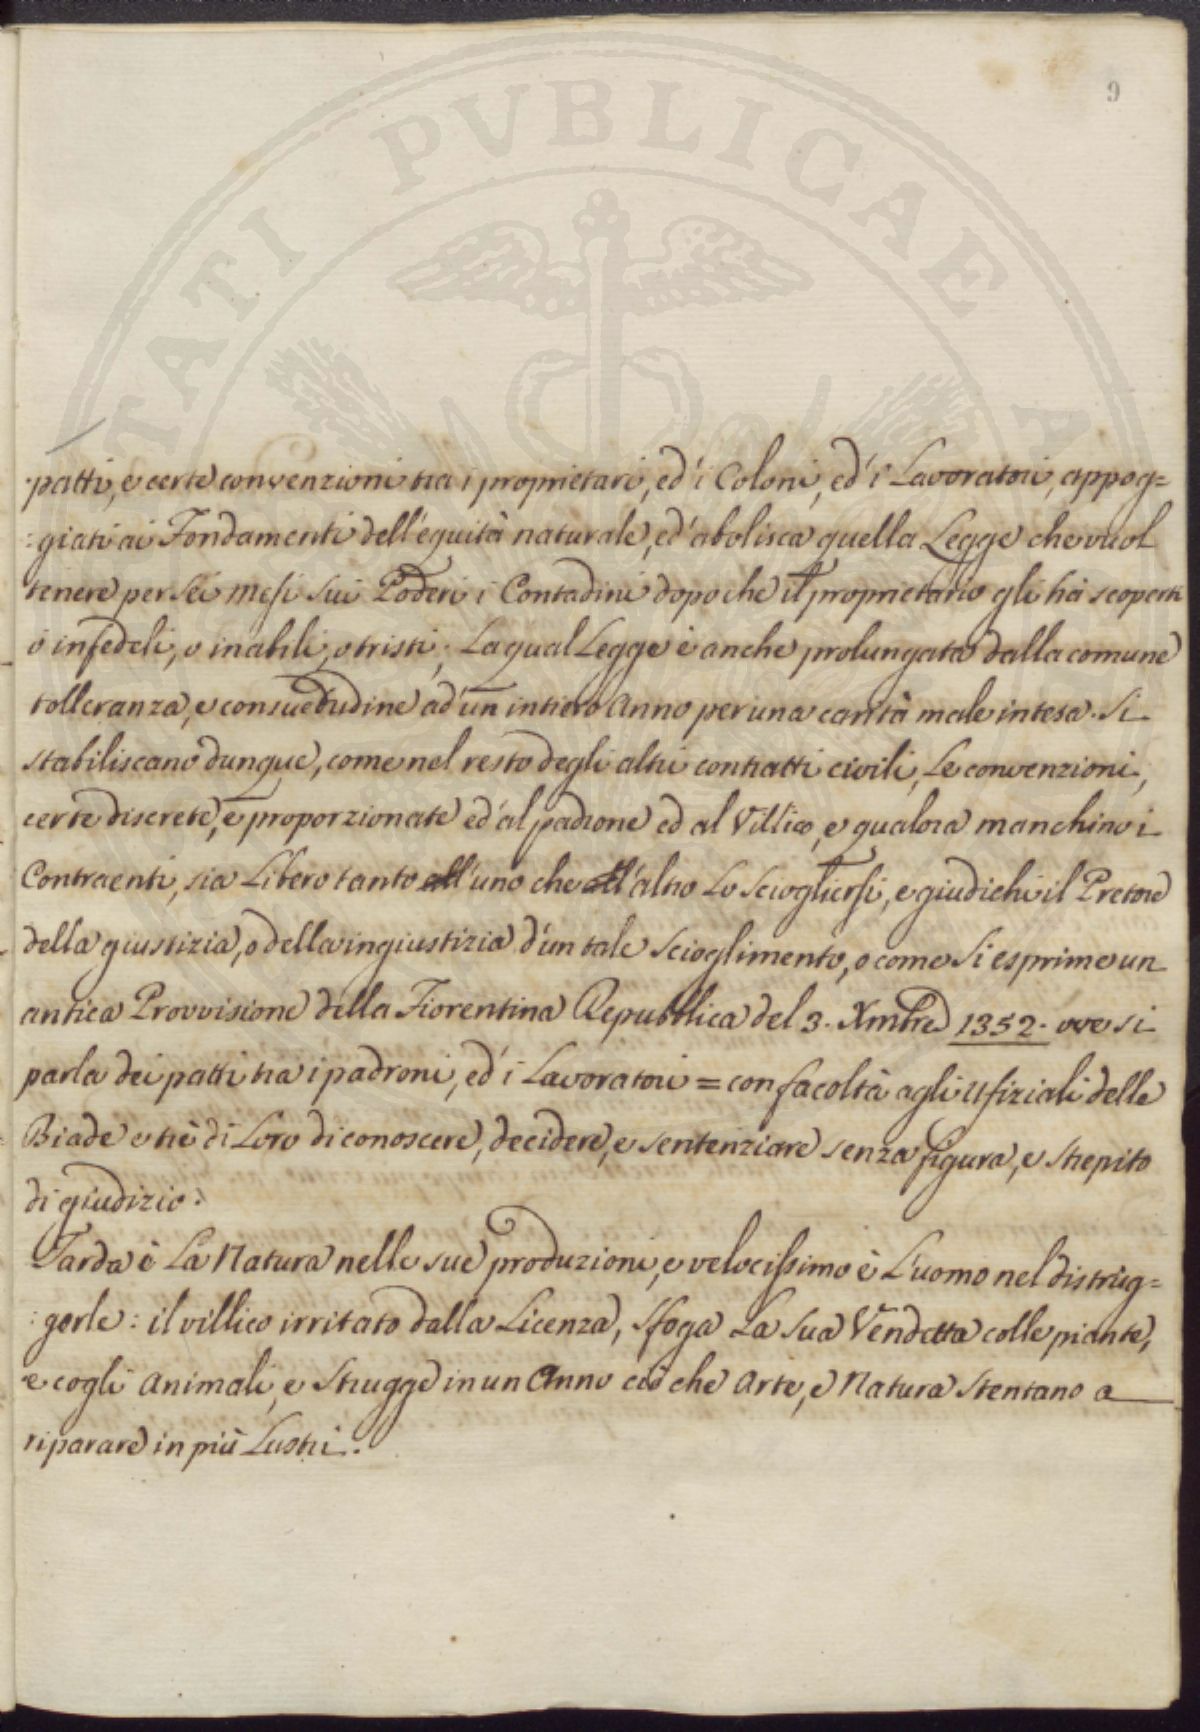 9
PROSPERITATI PVBLICAE A
patti, e certe convenzioni tra i proprietari, ed' i Coloni, ed' i Lavoratori, appog=
:giati ai Fondamenti dell'equità naturale, ed' abolisca quella Legge che vuol
tenere per sei mesi sui Poderi i Contadini dopo che il proprietario gli hà scoperti
ò infedeli, o inabili, o tristi; La qual Legge è anche prolungata dalla comune
tolleranza, e consuetudine ad' un intiero Anno per una carità male intesa. Si
stabiliscano dunque, come nel resto degli altri contratti civili, Le convenzioni,
certe discrete, e proporzionate ed' al padrone ed al Villico, e qualora manchino i
Contraenti, sia Libero tanto all'uno che all'altro Lo Sciogliersi, e giudichi il Pretore
della giustizia, o della ingiustizia d'un tale scioglimento, o come si esprime un
antica Provvisione della Fiorentina Repubblica del 3. Xmbre 1352. ove si
parla dei patti tra i padroni, ed' i Lavoratori = con facoltà agli Ufiziali delle
Biade e trè di Loro di conoscere, decidere, e sentenziare senza figura, e strepito
di giudizio:
Tarda è La Natura nelle sue produzioni, e velocissimo è L'uomo nel distrug=
:gerle: il villico irritato dalla Licenza, sfoga La sua Vendetta colle piante,
e cogli Animali, e strugge in un Anno ciò che Arte, e Natura stentano a
riparare in più Lustri.